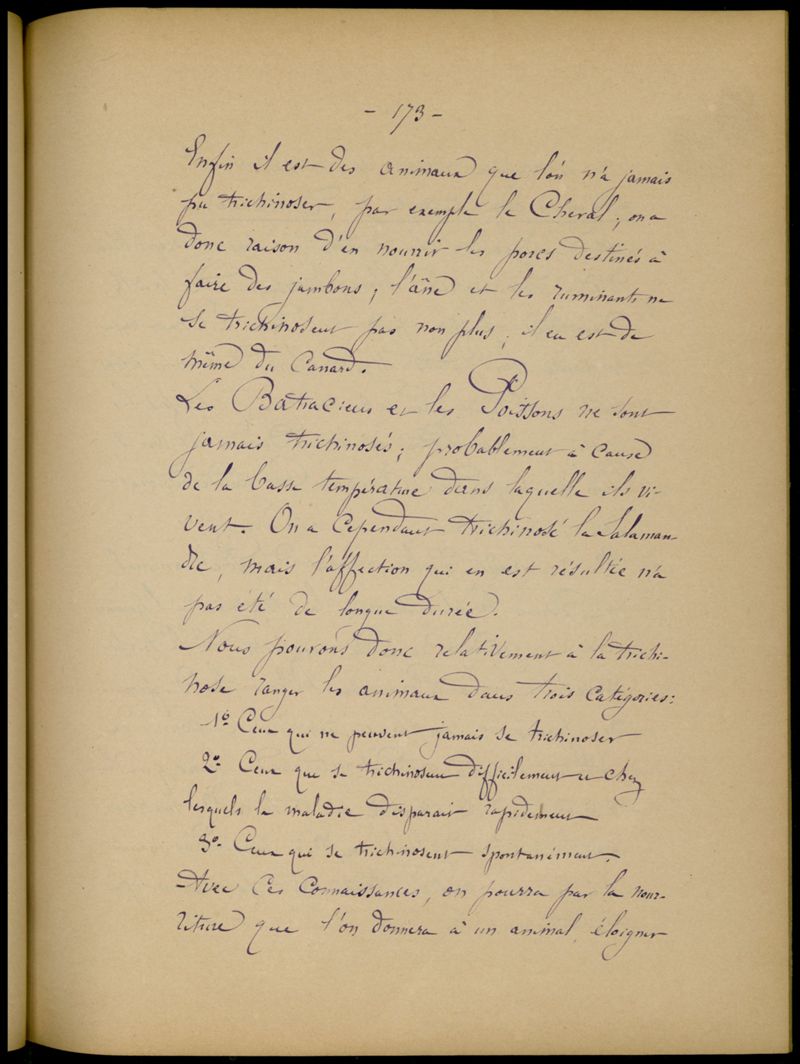 - 173 -
Enfin il est des animaux que l'on n'a jamais
pu trichinoser, par exemple le Cheval; on a
donc raison d'en nourrir les porcs destinés à
faire des jambons; l'âne et les ruminants ne
se trichinosent pas non plus; il en est de
même du Canard.
Les Batraciens et les Poissons ne sont
jamais trichinosés; probablement à cause
de la basse température dans laquelle ils vi-
vent. On a cependant trichinosé la Salaman-
dre, mais l'affection qui en est résultée n'a
pas été de longue durée.
Nous pouvons donc relativement à la trichi-
nose ranger les animaux dans trois catégories:
1o- Ceux qui ne peuvent jamais se trichinoser
2o- Ceux que se trichinosent difficilement et chez
lesquels la maladie disparait rapidement
3o- Ceux qui se trichinosent spontanément.
Avec ces connaissances, on pourra par la nour-
riture que l'on donnera à un animal éloigner